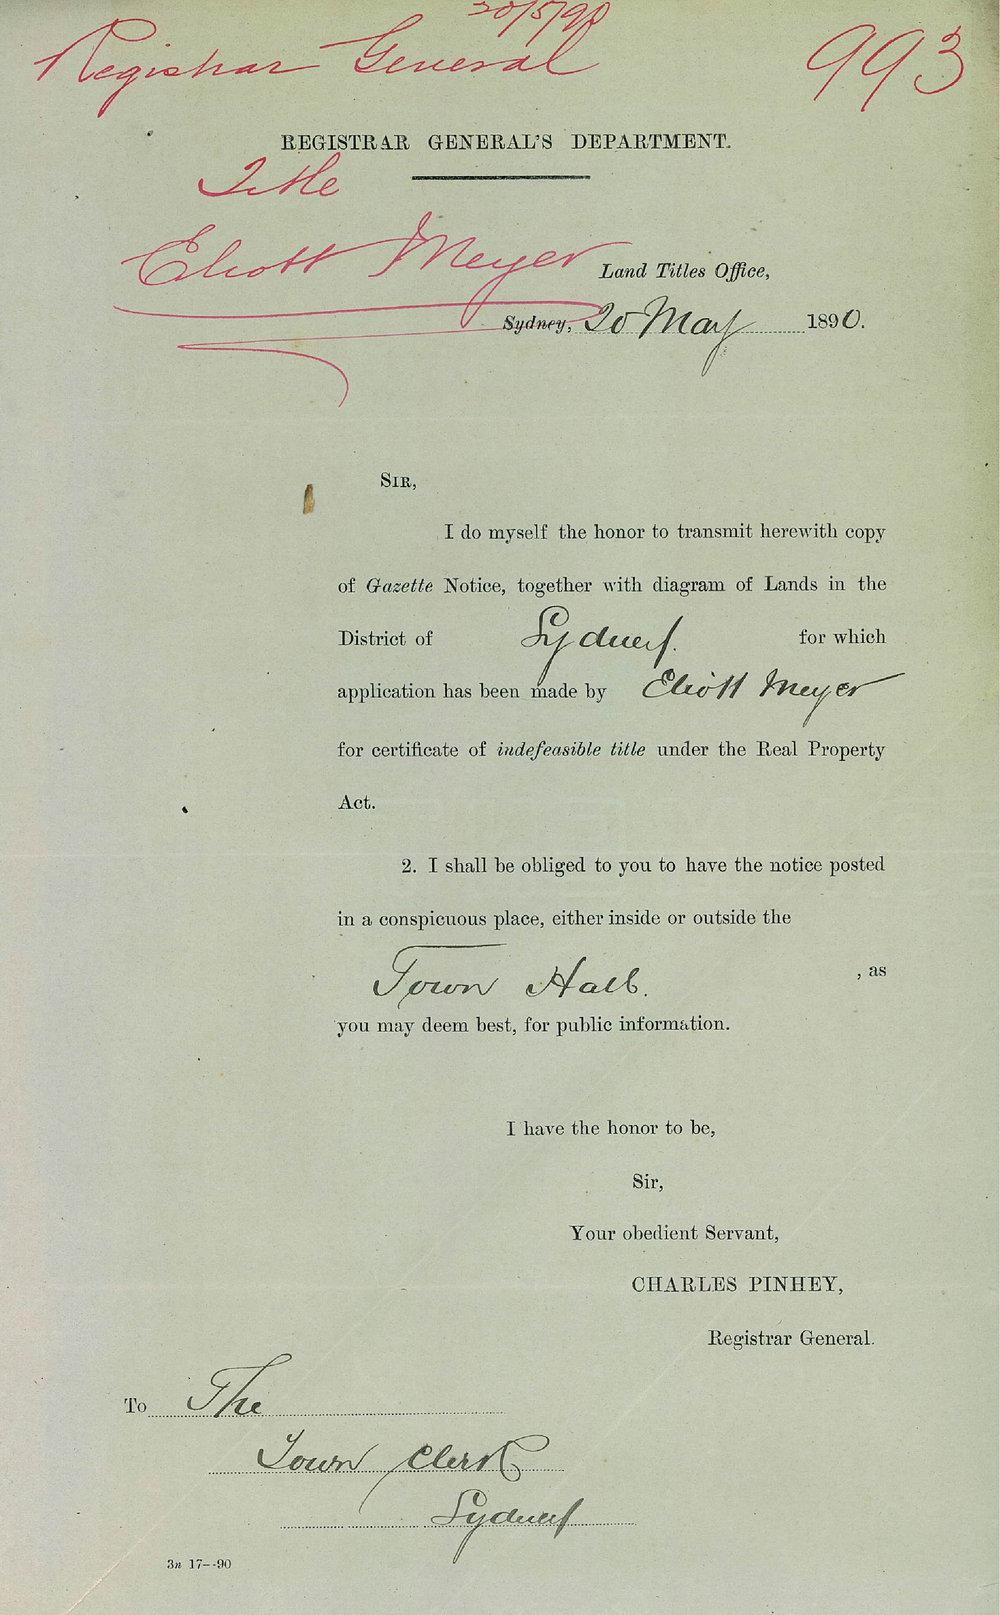 20/5/90
Registrar General 993
REGISTRAR GENERAL'S DEPARTMENT.
Title
Eliott Meyer
Land Titles Office,
Sydney, 20 May 1890.
SIR,
I do myself the honor to transmit herewith copy
of Gazette Notice, together with diagram of Lands in the
District of Sydney. for which
application has been made by Eliott Meyer
for certificate of indefeasible title under the Real Property
Act.
2. I shall be obliged to you to have the notice posted
in a conspicuous place, either inside or outside the
Town Hall. , as
you may deem best, for public information.
I have the honor to be,
Sir,
Your obedient Servant,
CHARLES PINHEY,
Registrar General.
To The
Town Clerk
Sydney
3n 17--90